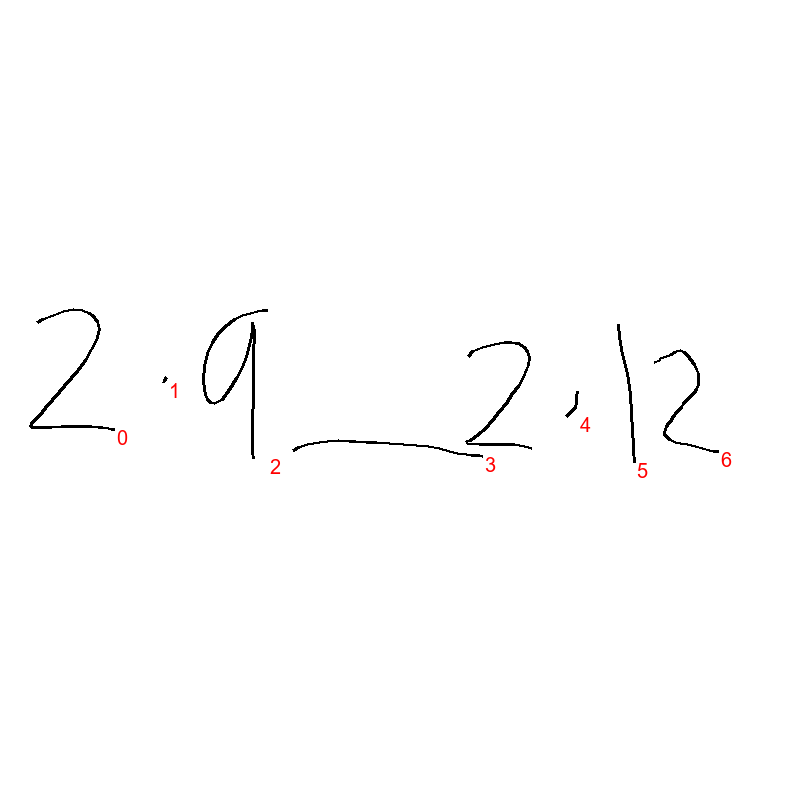 2.9_2.12
0 1 2 3 4 5 6